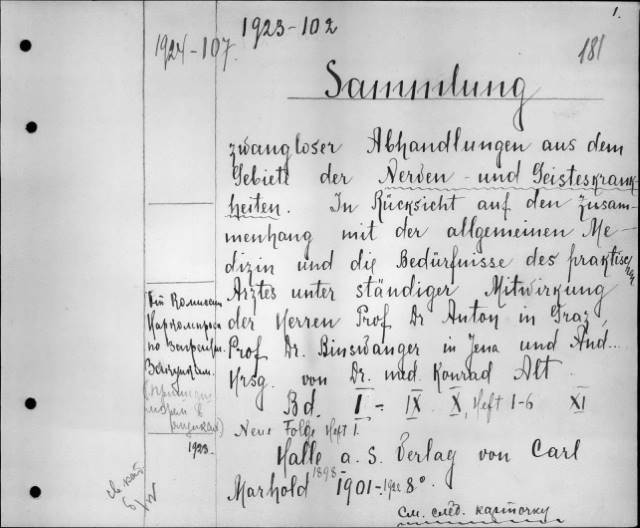 1.
1923-102
1924-107.
181
Sammlung
zwangloser Abhandlungen aus dem
Gebiete der Nerven- und Geisteskrank-
heiten. In Rücksicht auf den zusam-
menhang mit der allgemeinen Me-
dizin und die Bedürfnisse des praktischen
Arztes unter ständiger Mitwirkung
der Herren Prof Dr Anton in Graz,
Prof. Dr. Binswanger in Jena und And...
Hrsg. von Dr. med. Konrad Alt
Bd. I - IX X, Heft 1-6 XI
Neue Folge Heft 1.
Halle a. S. Verlag von Carl
Marhold 1898- 1901-1922 8°.
См. след. карточку
Наркомпроса
по
1923.